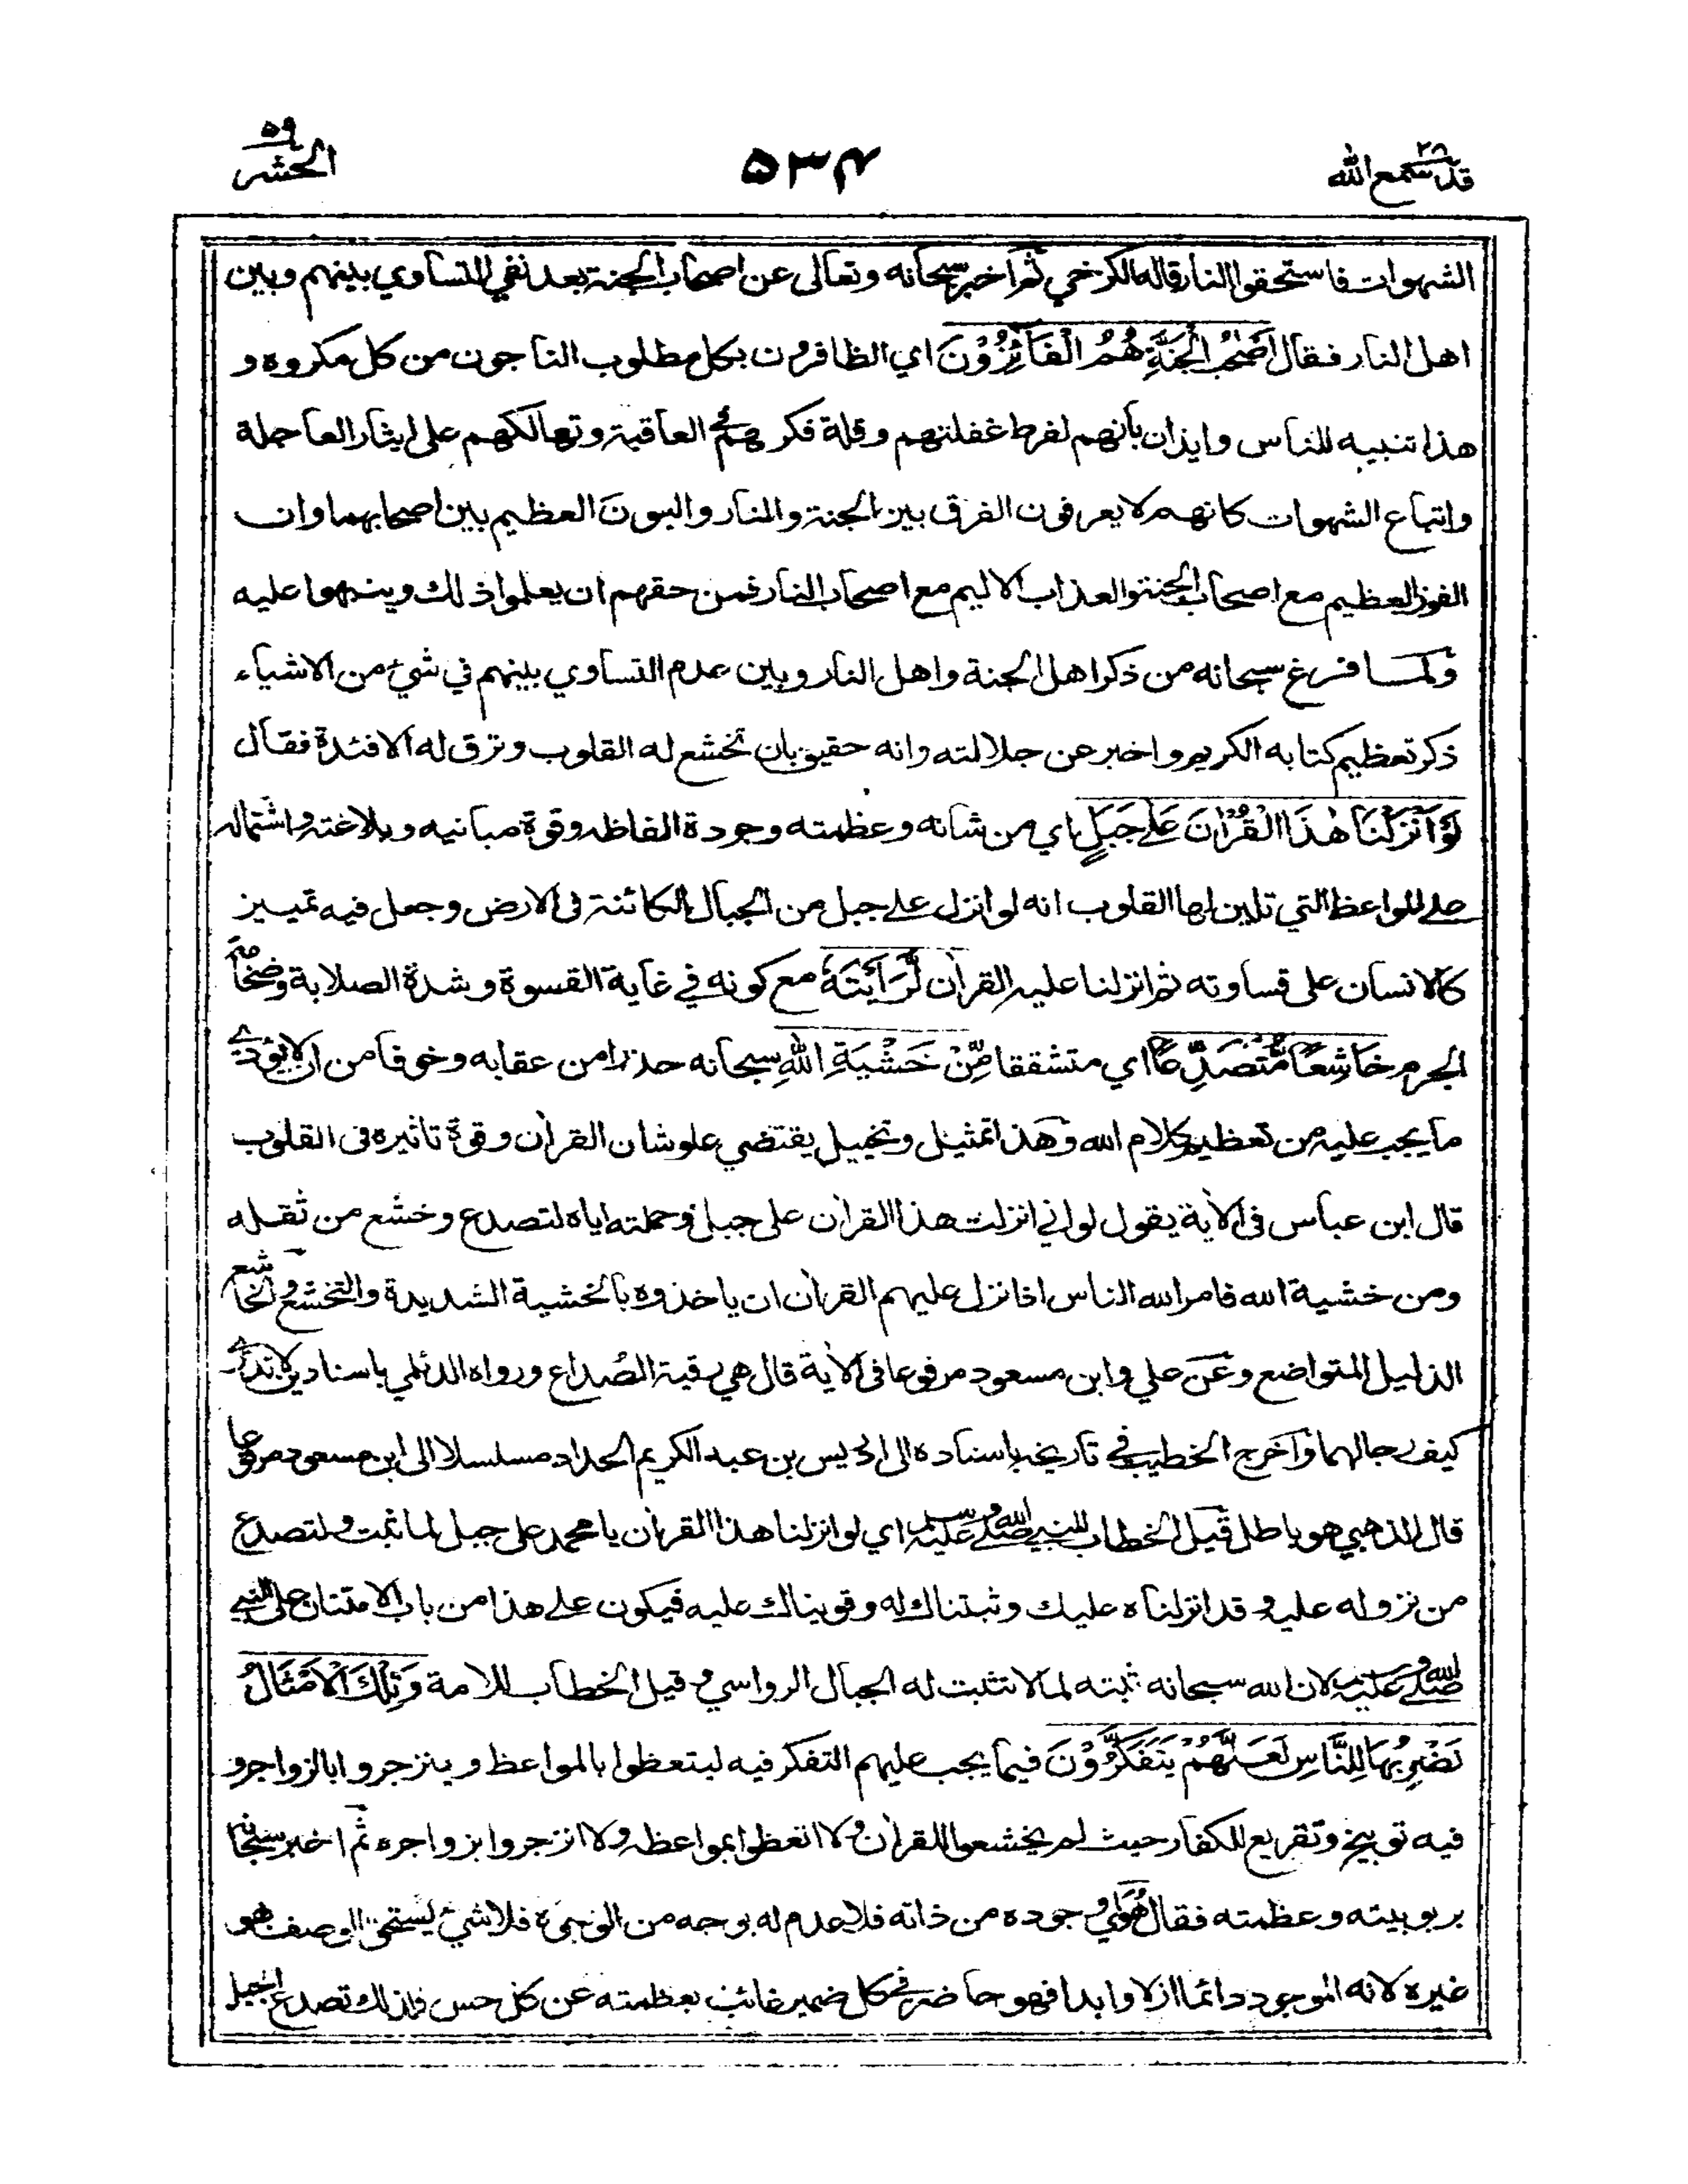 قد سمع الله ٢٨
٥٣٤
الحشر ٥٩
الشهوات فاستحقوا النار قاله الكرخي ثم اخبر سبحانه وتعالى عن اصحاب الجنة بعد نفي التساوي بينهم وبين
اهل النار فقال اَصْحٰبُ الْجَنَّةِ هُمُ الْفَآئِزُوْنَ اي الظافرون بكل مطلوب الناجون من كل مكروه و
هذا تنبيه للناس وايذان بأنهم لفرط غفلتهم وقلة فكرهم في العاقبة وتهالكهم على ايثار العاجلة
واتباع الشهوات كانهم لا يعرفون الفرق بين الجنة والنار والبون العظيم بين اصحابهما وان
الفوز العظيم مع اصحاب الجنة والعذاب الاليم مع اصحاب النار فمن حقهم ان يعلموا ذلك وينبهوا عليه
ولما فرغ سبحانه من ذكر اهل الجنة واهل النار وبين عدم التساوي بينهم في شيء من الاشياء
ذكر تعظيم كتابه الكريم واخبر عن جلالته وانه حقيق بان تخشع له القلوب وترق له الافئدة فقال
لَوْ اَنْزَلْنَا هٰذَا الْقُرْاٰنَ عَلٰى جَبَلٍ اي من شانه وعظمته وجودة الفاظه وقوة مبانيه وبلاغته واشتماله
على المواعظ التي تلين لها القلوب انه لو انزل على جبل من الجبال الكائنة في الارض وجعل فيه تمييز
كالانسان على قساوته ثم انزلنا عليه القرآن لَّرَاَيْتَهٗ مع كونه في غاية القسوة وشدة الصلابة وضخامة
الجرم خَاشِعًا مُّتَصَدِّعًا اي متشققا مِّنْ خَشْيَةِ اللهِ سبحانه حذرا من عقابه وخوفا من ان لا يؤدي
ما يجب عليه من تعظيم كلام الله وهذا تمثيل وتخييل يقتضي علو شان القرآن وقوة تاثيره في القلوب
قال ابن عباس في الآية يقول لو اني انزلت هذا القرآن على جبل وحملته اياه لتصدع وخشع من ثقله
ومن خشية الله فامر الله الناس اذا نزل عليهم القرآن ان ياخذوه بالخشية الشديدة والتخشع والخاشع
الذليل المتواضع وعن علي وابن مسعود مرفوعا في الآية قال هي رقية الصُداع ورواه الديلمي باسنادين لا ندري
كيف رجالهما وآخرج الخطيب في تاريخه باسناده الى ادريس بن عبد الكريم الحداد مسلسلا الى ابن مسعود مرفوعا
قال الذهبي هو باطل قيل الخطاب للنبي صلى الله عليه وسلم اي لو انزلنا هذا القرآن يا محمد على جبل لما ثبت ولتصدع
من نزوله عليه وقد انزلناه عليك وثبتناك له وقويناك عليه فيكون على هذا من باب الامتنان على النبي
صلى الله عليه وسلم لان الله سبحانه ثبته لما لا تثبت له الجبال الرواسي وقيل الخطاب للامة وَتِلْكَ الْاَمْثَالُ
نَضْرِبُهَا لِلنَّاسِ لَعَلَّهُمْ يَتَفَكَّرُوْنَ فيما يجب عليهم التفكر فيه ليتعظوا بالمواعظ وينزجروا بالزواجر و
فيه توبيخ وتقريع للكفار حيث لم يخشعوا للقرآن ولا اتعظوا بمواعظه ولا انزجروا بزواجره ثم اخبر سبحانه
بربوبيته وعظمته فقال هُوَ اي وجوده من ذاته فلا عدم له بوجه من الوجوه فلا شيء يستحق الوصف بهو
غيره لانه الموجود دائما ازلا وابدا فهو حاضر في كل ضمير غائب بعظمته عن كل حس فلذلك تصدع الجبل